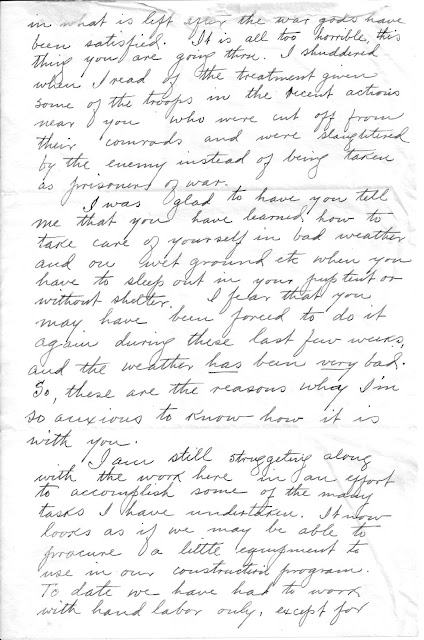 in what is left after the war gods have
been satisfied. It is all too horrible, this
thing you are going thru. I shuddered
when I read of the treatment given
some of the troops in the recent actions
near you who were cut off from
their comrads and were slaughtered
by the enemy instead of being taken
as prisoners of war.
I was glad to have you tell
me that you have learned how to
take care of yourself in bad weather
and on wet ground etc when you
have to sleep out in your pup tent or
without shelter. I fear that you
may have been forced to do it
again during these last few weeks,
and the weather has been very bad.
So, these are the reasons why I'm
so anxious to know how it is
with you.
I am still struggeling along
with the work here in an effort
to accomplish some of the many
tasks I have undertaken. It now
looks as if we may be able to
procure a little equipment to
use in our construction program.
To date we have had to work
with hand labor only, except for